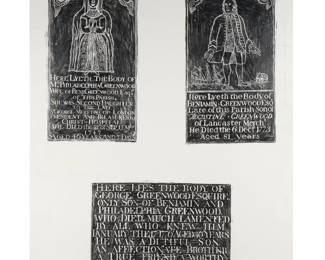 HERE LYETH THE BODY OF
Mrs PHILADELPHIA GREENWOOD
WIFE OF BENJ GREENWOOD Esqr
OF THIS PARISH
SHE WAS SECOND DAUGHTER
OF THE LATE
OF LONDON
PRESIDENT AND TREASURER
CHRIST HOSPITAL
SHE DIED THE
AGED 40 YEARS AND 7 DAYS
Here Lyeth the Body of
BENJAMIN GREENWOOD ESQ
Late of this Parish Son of
AUGUSTINE GREENWOOD
of Lancaster Merch
He Died the 6 Decr 1773
Aged 81 Years
HERE LIES THE BODY OF
GEORGE GREENWOOD ESQUIRE
ONLY SON OF BENJAMIN AND
PHILADELPHIA GREENWOOD
WHO DIED MUCH LAMENTED
BY ALL WHO KNEW HIM
JANUARY THE 1 AGED YEARS
HE WAS A DUTIFUL SON
AN AFFECTIONATE BROTHER
A TRUE FRIEND A WORTHY